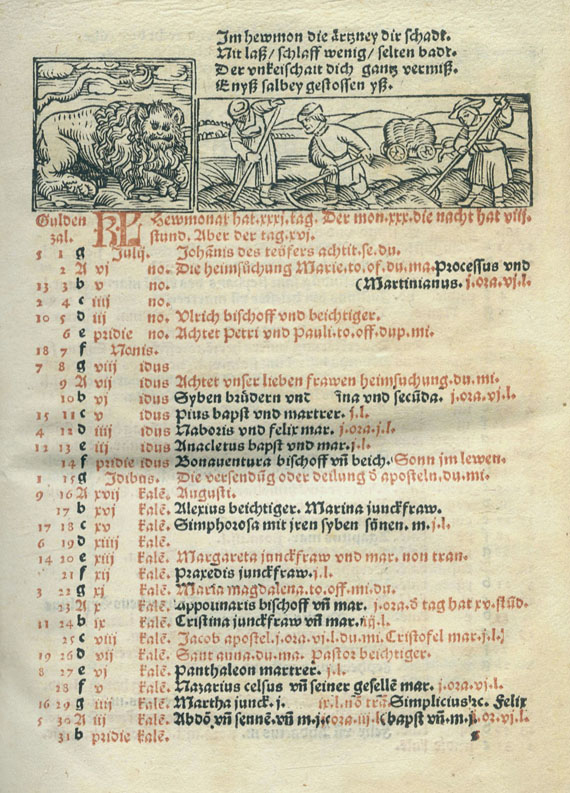 Im hewmon die ärtzney dir schadt.
Nit laß/ schlaff wenig/ selten badt.
Der vnkeischait dich gantz vermiß.
Enyß salbey gestossen yß.
Gulden zal.
KL Hewmonat hat.xxxj.tag. Der mon.xxx.die nacht hat viij.
stund. Aber der tag.xvj.
5 1 g Julij. Johānis des teüfers achtit.se.du.
2 A vj no. Die heimsůchung Marie.to.of.du.ma.Processus vnd
13 3 b v no. (Martinianus. j.ora.vj.l.
2 4 c iiij no.
10 5 d iij no. Vlrich bischoff vnd beichtiger.
6 e pridie no. Achtet Petri vnd Pauli.to.off.dup.mi.
18 7 f Nonis.
7 8 g viij idus
9 A vij idus Achtet vnser lieben frawen heimsuchung.du.mi.
10 b vj idus Syben brüdern vnd īna vnd secūda. j.ora.vj.l.
15 11 c v idus Pius bapst vnd martrer. j.l.
4 12 d iiij idus Naboris vnd felix mar. j.ora.j.l.
12 13 e iij idus Anacletus bapst vnd mar.j.l.
14 f pridie idus Bonauentura bischoff vn̄ beich. Sonn im lewen.
1 15 g Idibus. Die versendūg oder deilung ō aposteln.du.mi.
9 16 A xvij kalē. Augusti.
17 b xvj kalē. Alexius beichtiger. Marina junckfraw.
17 18 c xv kalē. Simphorosa mit jren syben sönen. m.j.l.
6 19 d xiiij kalē.
14 20 e xiij kalē. Margareta junckfraw vnd mar. non tran.
21 f xij kalē. Praxedis junckfraw.j.l.
3 22 g xj kalē. Maria magdalena.to.off.mi.du.
23 A x kalē. Appolinaris bischoff vn̄ mar. j.ora.ō tag hat xv.stūd.
11 24 b ix kalē. Cristina junckfraw vn̄ mar.iij.l.
25 c viij kalē. Jacob apostel.j.ora.vj.l.du.mi. Cristofel mar.j.l.
19 26 d vij kalē. Sant anna.du.ma. Pastor beichtiger.
8 27 e vj kalē. Panthaleon martrer. j.l.
28 f v kalē. Nazarius celsus vn̄ seiner gesellē mar. j.ora.vj.l.
16 29 g iiij kalē. Martha junck. j. ix.l.nō trā Simplicius ꝛc. Felix
5 30 A iij kalē. Abdō.vn̄ sennē.vn̄ m.j.(ora.iij.l.(bapst vn̄.m.j. or.vj.l.
31 b pridie kalē.